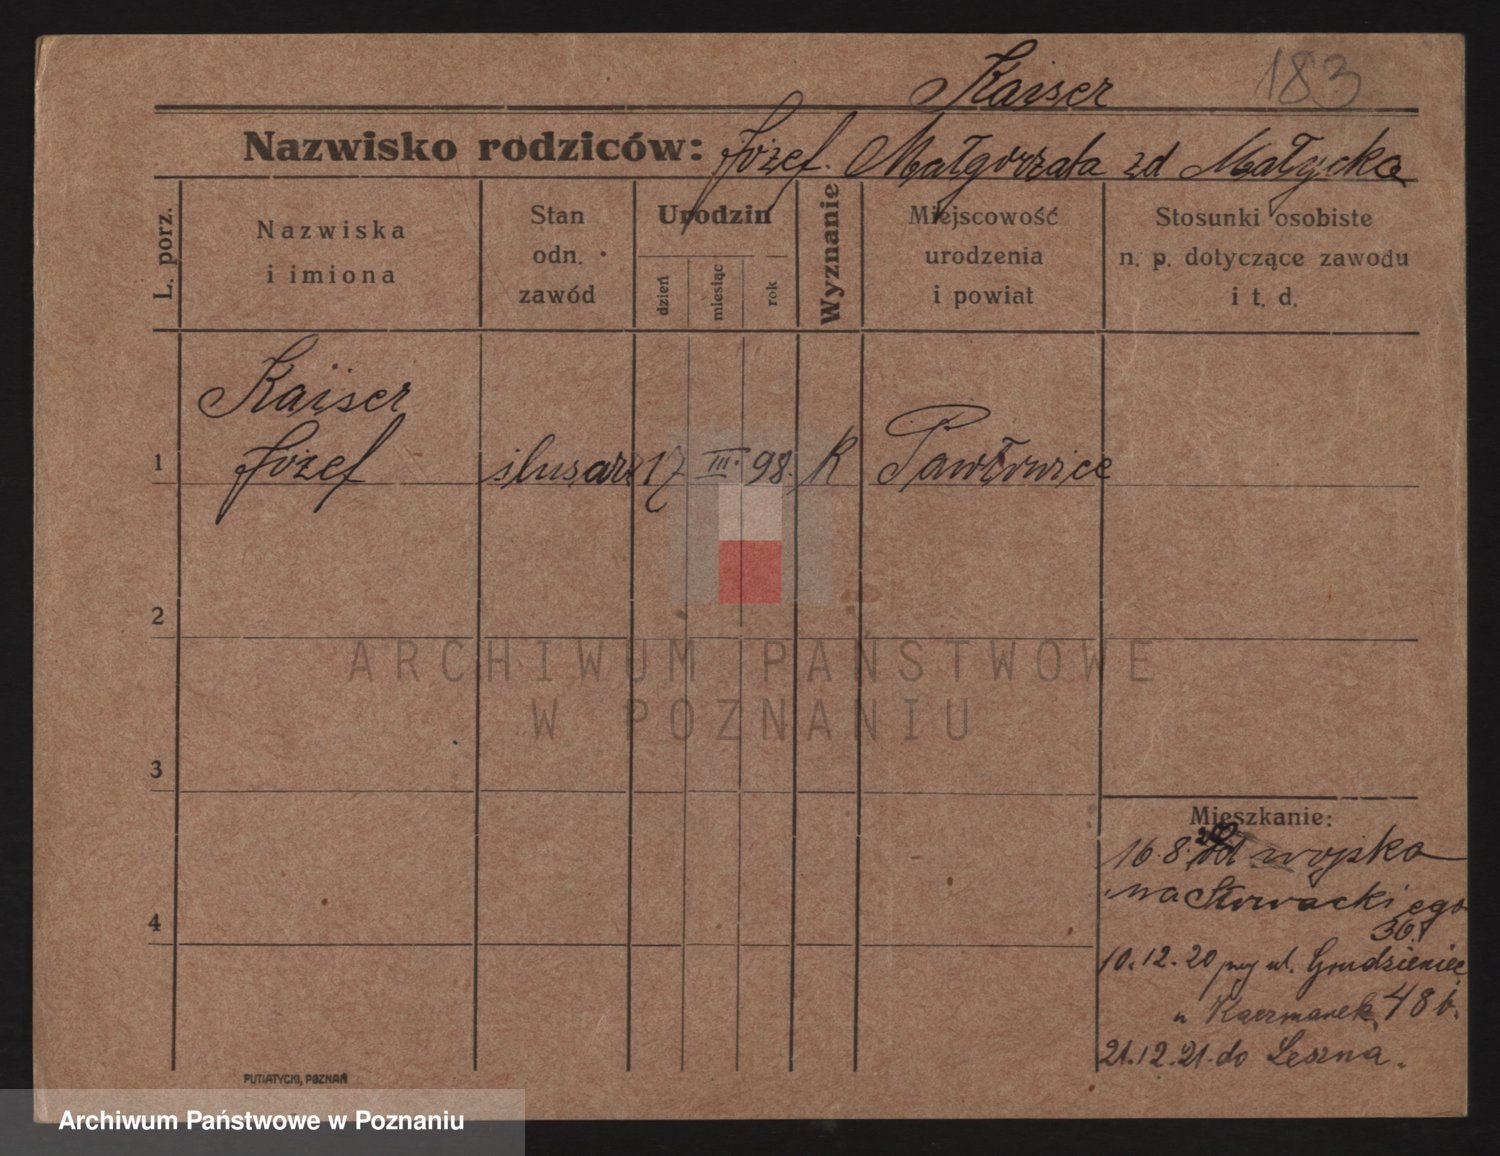 Kaiser 183
Nazwisko rodziców: Józef. Małgorzata zd Małycka
L. porz.
Nazwiska
i imiona
Stan
odn.
zawód
Urodzin
dzień
miesiąc
rok
Wyznanie
Miejscowość
urodzenia
i powiat
Stosunki osobiste
n. p. dotyczące zawodu
i t. d.
Kaiser
1 Józef ślusarz 17 III. 98. K Pawłowice
2
3
4
ARCHIWUM PAŃSTWOWE
W POZNANIU
Mieszkanie:
16.8. od wojska
na Słowackiego
36.
10.12.20 przy ul. Grudzieniec
u Kaczmarek 48 b.
21.12.21. do Leszna.
PUTIATYCKI, POZNAŃ
Archiwum Państwowe w Poznaniu